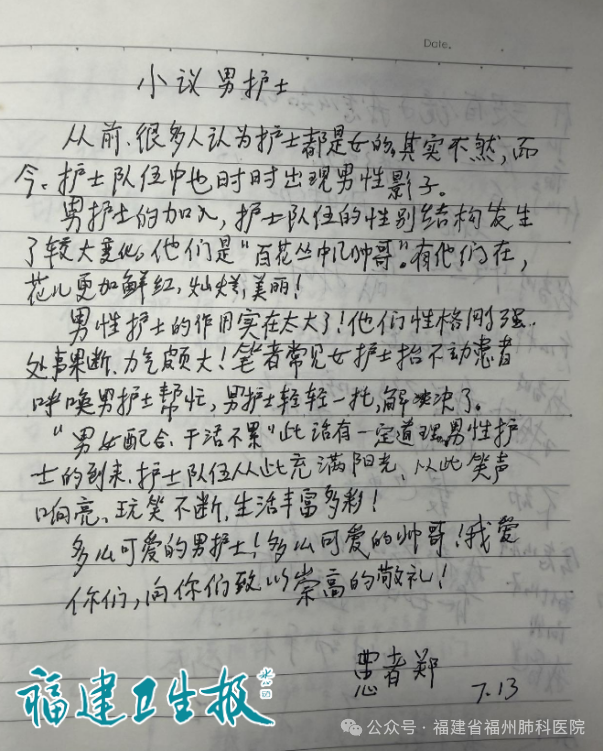 Date.
小议男护士
从前、很多人认为护士都是女的,其实不然,而
今、护士队伍中也时时出现男性影子。
男护士的加入,护士队伍的性别结构发生
了较大变化。他们是“百花丛中几帅哥”。有他们在,
花儿更加鲜红,灿烂,美丽!
男性护士的作用实在太大了!他们性格刚强、
处事果断、力气颇大!笔者常见女护士抬不动患者
呼唤男护士帮忙,男护士轻轻一托,解决了。
“男女配合、干活不累”此话有一定道理。男性护
士的到来、护士队伍从此充满阳光、从此笑声
响亮、玩笑不断,生活丰富多彩!
多么可爱的男护士!多么可爱的帅哥!我爱
你们,向你们致以崇高的敬礼!
患者郑
7.13
福建卫生报
公众号·福建省福州肺科医院